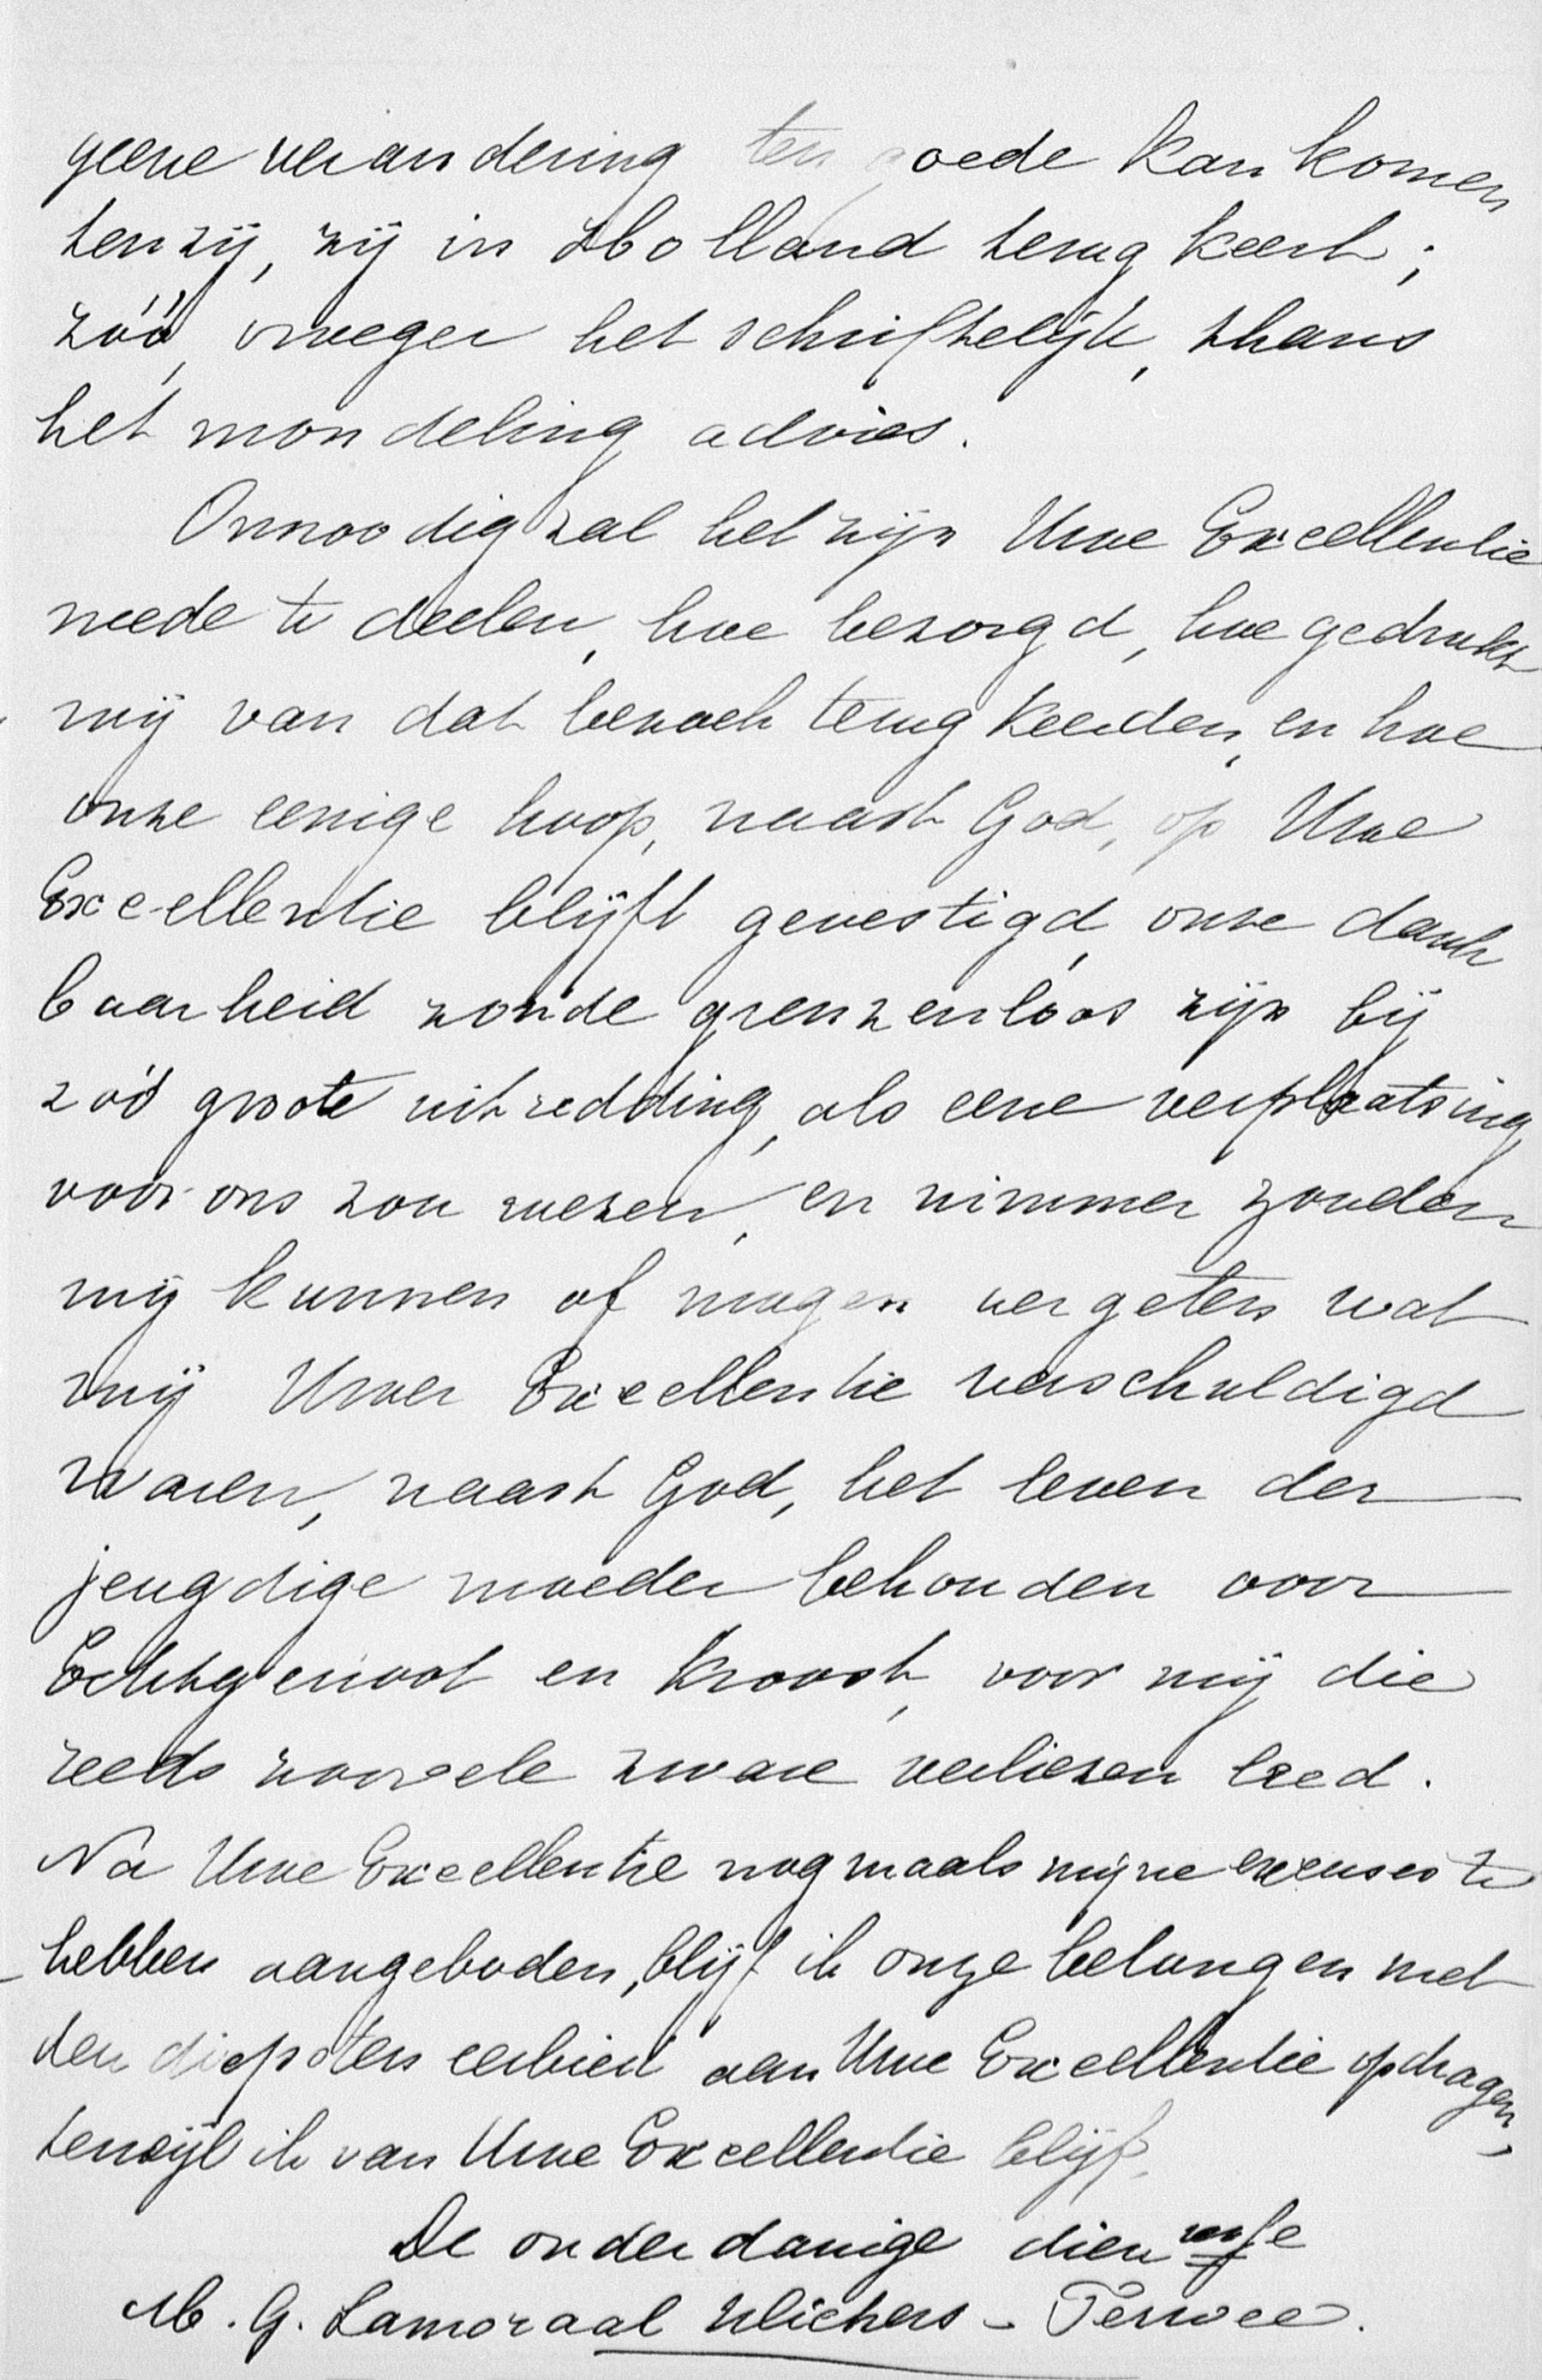 geene verandering ten goede kan komen
tenzij, zij in Holland terug keert;
zóó, vroeger het schriftelijk, thans
het mondeling advies.
Onnoodig zal het zijn Uwe Excellentie
mede te deelen, hoe bezorgd, hoe gedrukt
wij van dat bezoek terug keerden, en hoe
onze eenige hoop, naast God, op Uwe
Excellentie blijft gevestigd, onze dank
baarheid zoude grenzenloos zijn bij
zóó groote uitredding, als eene verplaatsing
voor ons zou wezen, en nimmer zouden
wij kunnen of mogen vergeten wat
wij Uwer Excellentie verschuldigd
waren, naast God, het leven der
jeugdige moeder behouden voor
Echtgenoot en kroost, voor mij die
reeds zoovele zware verliezen leed.
Na Uwe Excellentie nogmaals mijne excuses te
hebben aangeboden, blijf ik onze belangen met
den diepsten eerbied aan Uwe Excellentie opdragen,
terwijl ik van Uwe Excellentie blijf,
De onderdanige dien
M. G. Lamoraal Wichers - Terwee.